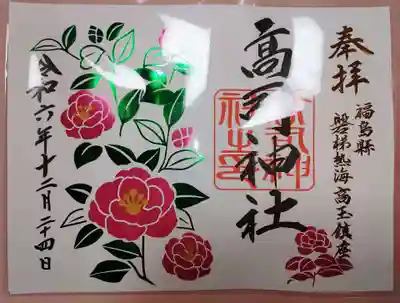 奉拝
福島縣
磐梯熱海 高玉鎮座
高司神社
令和六年十二月二十四日